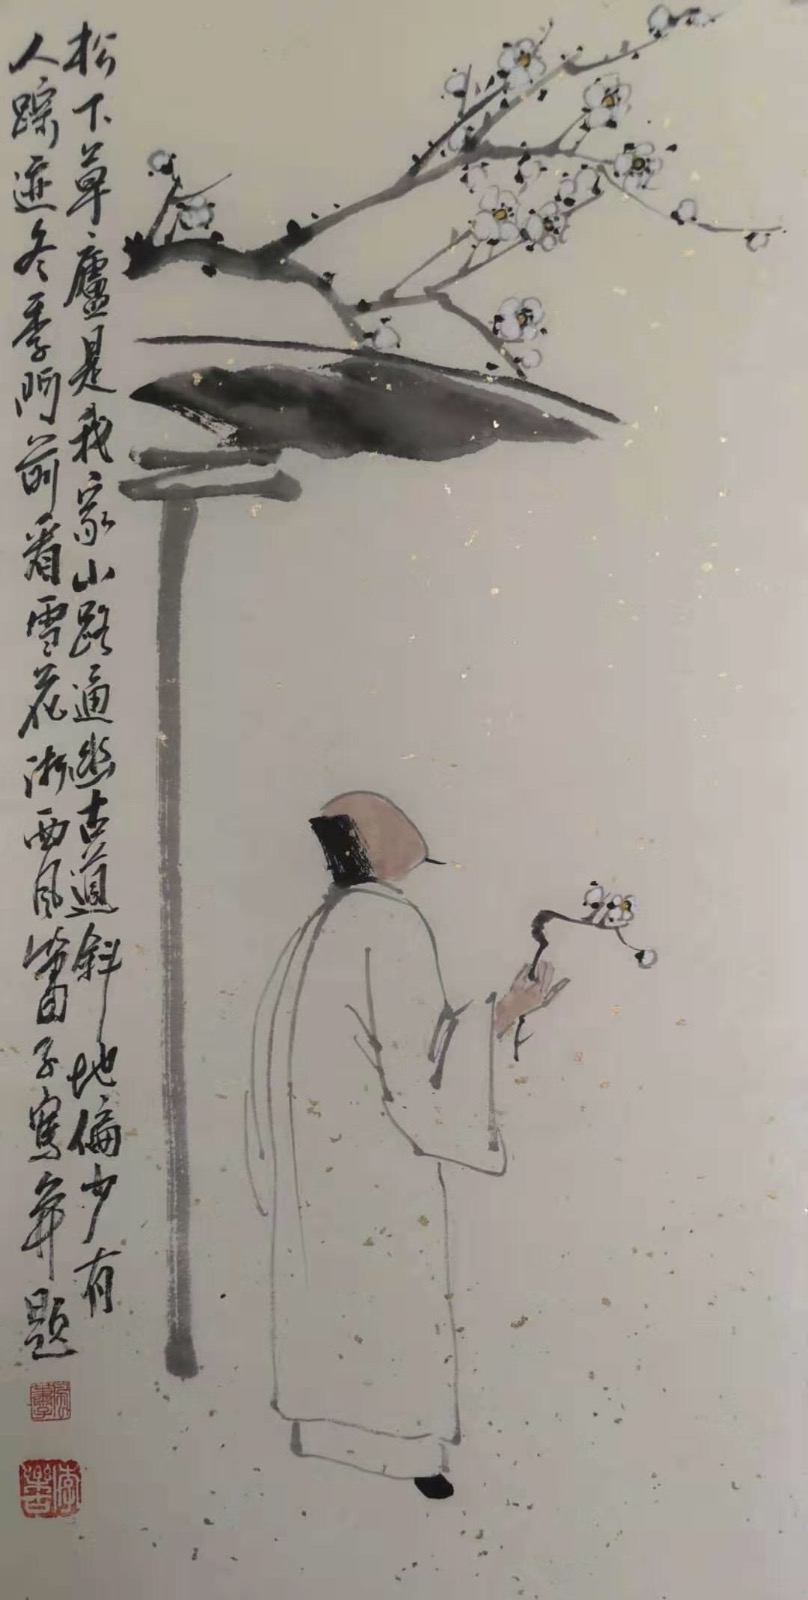 松下草廬是我家山路通幽古道斜地偏少有
人踪迹冬季门前看雪花浙西风笛子寫并题